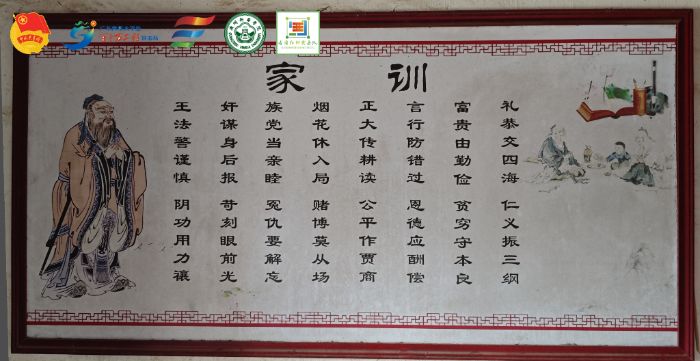 家训
礼恭交四海 仁义振三纲
富贵由勤俭 贫穷守本良
言行防错过 恩德应酬偿
正大传耕读 公平作贾商
烟花休入局 赌博莫从场
族党当亲睦 冤仇要解忘
奸谋身后报 苛刻眼前光
王法警谨慎 阴功用力禳